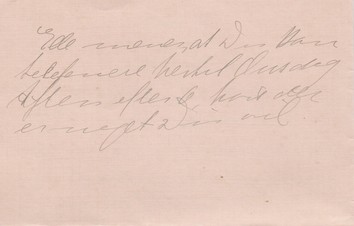 Elle mener, at Du kan
telefonere hertil Onsdag
Aften efter 6, hvis der
er noget Du vil.